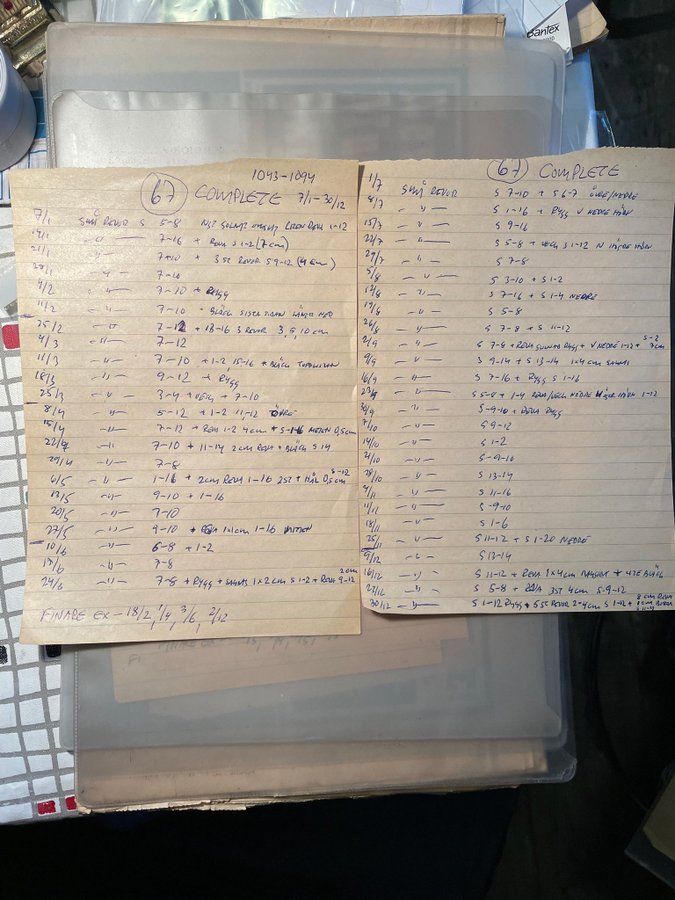 Bantex
1043-1094
67 COMPLETE 7/1-30/12
7/1 SMÅ REVOR S 5-8 1-12
14/1 -"- 7-16 + REVA S 1-2 (7 cm)
21/1 -"- 7+10 + 3 ST REVOR S 9-12 (4 cm)
-"- 7-10
4/2 -"- 7-10 + RYGG
11/2 -"- 7-10 BLÄCK SISTA SIDAN
25/2 -"- 7-12 + 13-16 3 REVOR 3, 5, 10 cm
4/3 -"- 7-12
11/3 -"- 7-10 + 1-2 15-16 + BLÄCK
18/3 -"- 9-12 + RYGG
25/3 -"- 3-4 + VECK + 7-10
8/4 -"- 5-12 + 1-2 11-12 ÖVRE
15/4 -"- 7-12 + REVA 1-2 4cm + S 1-16 MITTEN 0,5cm
22/4 -"- 7-10 + 11-14 2cm REVA + BLÄCK S 14
29/4 -"- 7-8
6/5 -"- 1-16 + 2cm REVA 1-16 2ST + HÅL 0,5cm S-12
13/5 -"- 9-10 + 1-16
20/5 -"- 7-10
27/5 -"- 9-10 + REVA 1x1cm 1-16 MITTEN
10/6 -"- 6-8 + 1-2
17/6 -"- 7-8
24/6 -"- 7-8 + RYGG + SAKNAS 1x2cm S 1-2 + REVA 9-12 2cm
FINARE EX - 18/2, 1/4, 3/6, 2/12
67 COMPLETE
1/7 SMÅ REVOR S 7-10 + S 6-7 ÖVRE/NEDRE
8/7 -"- S 1-16 + RYGG V NEDRE HÖRN
15/7 -"- S 9-16
22/7 -"- S 5-8 + VECK S 1-12 N HÖGRE HÖRN
29/7 -"- S 7-8
5/8 -"- S 3-10 + S 1-2
12/8 -"- S 7-16 + S 1-4 NEDRE
19/8 -"- S 5-8
26/8 -"- S 7-8 + S 11-12
2/9 -"- S 7-8 + REVA RYGG + V NEDRE 1-12 + S-2 7cm
9/9 -"- S 9-14 + S 13-14 1x4cm SAKNAS
16/9 -"- S 7-16 + RYGG S 1-16
23/9 -"- S 5-8 + 1-4 REVA/VECK NEDRE HÖGER HÖRN 1-12
30/9 -"- S-9-10 + REVA RYGG
7/10 -"- S 9-12
14/10 -"- S 1-2
21/10 -"- S-9-16
28/10 -"- S 13-14
4/11 -"- S 11-16
11/11 -"- S-9-10
18/11 -"- S 1-6
25/11 -"- S 11-12 + S 1-20 NEDRE
9/12 -"- S 13-14
16/12 -"- S 11-12 + REVA 1x4cm + BLÄCK
23/12 -"- S 5-8 + REVA 3ST 4cm S-9-12
30/12 -"- S 1-12 RYGG + 5 ST REVOR 2-4cm S 1-12 + 8cm REVA